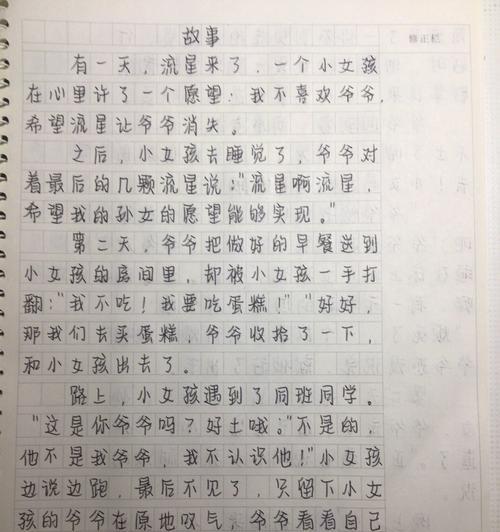 故事
修正栏
有一天，流星来了，一个小女孩
在心里许了一个愿望：我不喜欢爷爷，
希望流星让爷爷消失。
之后，小女孩去睡觉了，爷爷对
着最后的几颗流星说："流星啊流星，
希望我的孙女的愿望能够实现。"
第二天，爷爷把做好的早餐送到
小女孩的房间里，却被小女孩一手打
翻："我不吃！我要吃蛋糕！""好好，
那我们去买蛋糕，爷爷收拾了一下，
和小女孩出去了。
路上，小女孩遇到了同班同学。
"这是你爷爷吗？好土哦；"不是的，
他不是我爷爷，我不认识他！"小女孩
边说边跑，最后不见了，只留下小女
孩的爷爷在原地叹气，爷爷看看自己